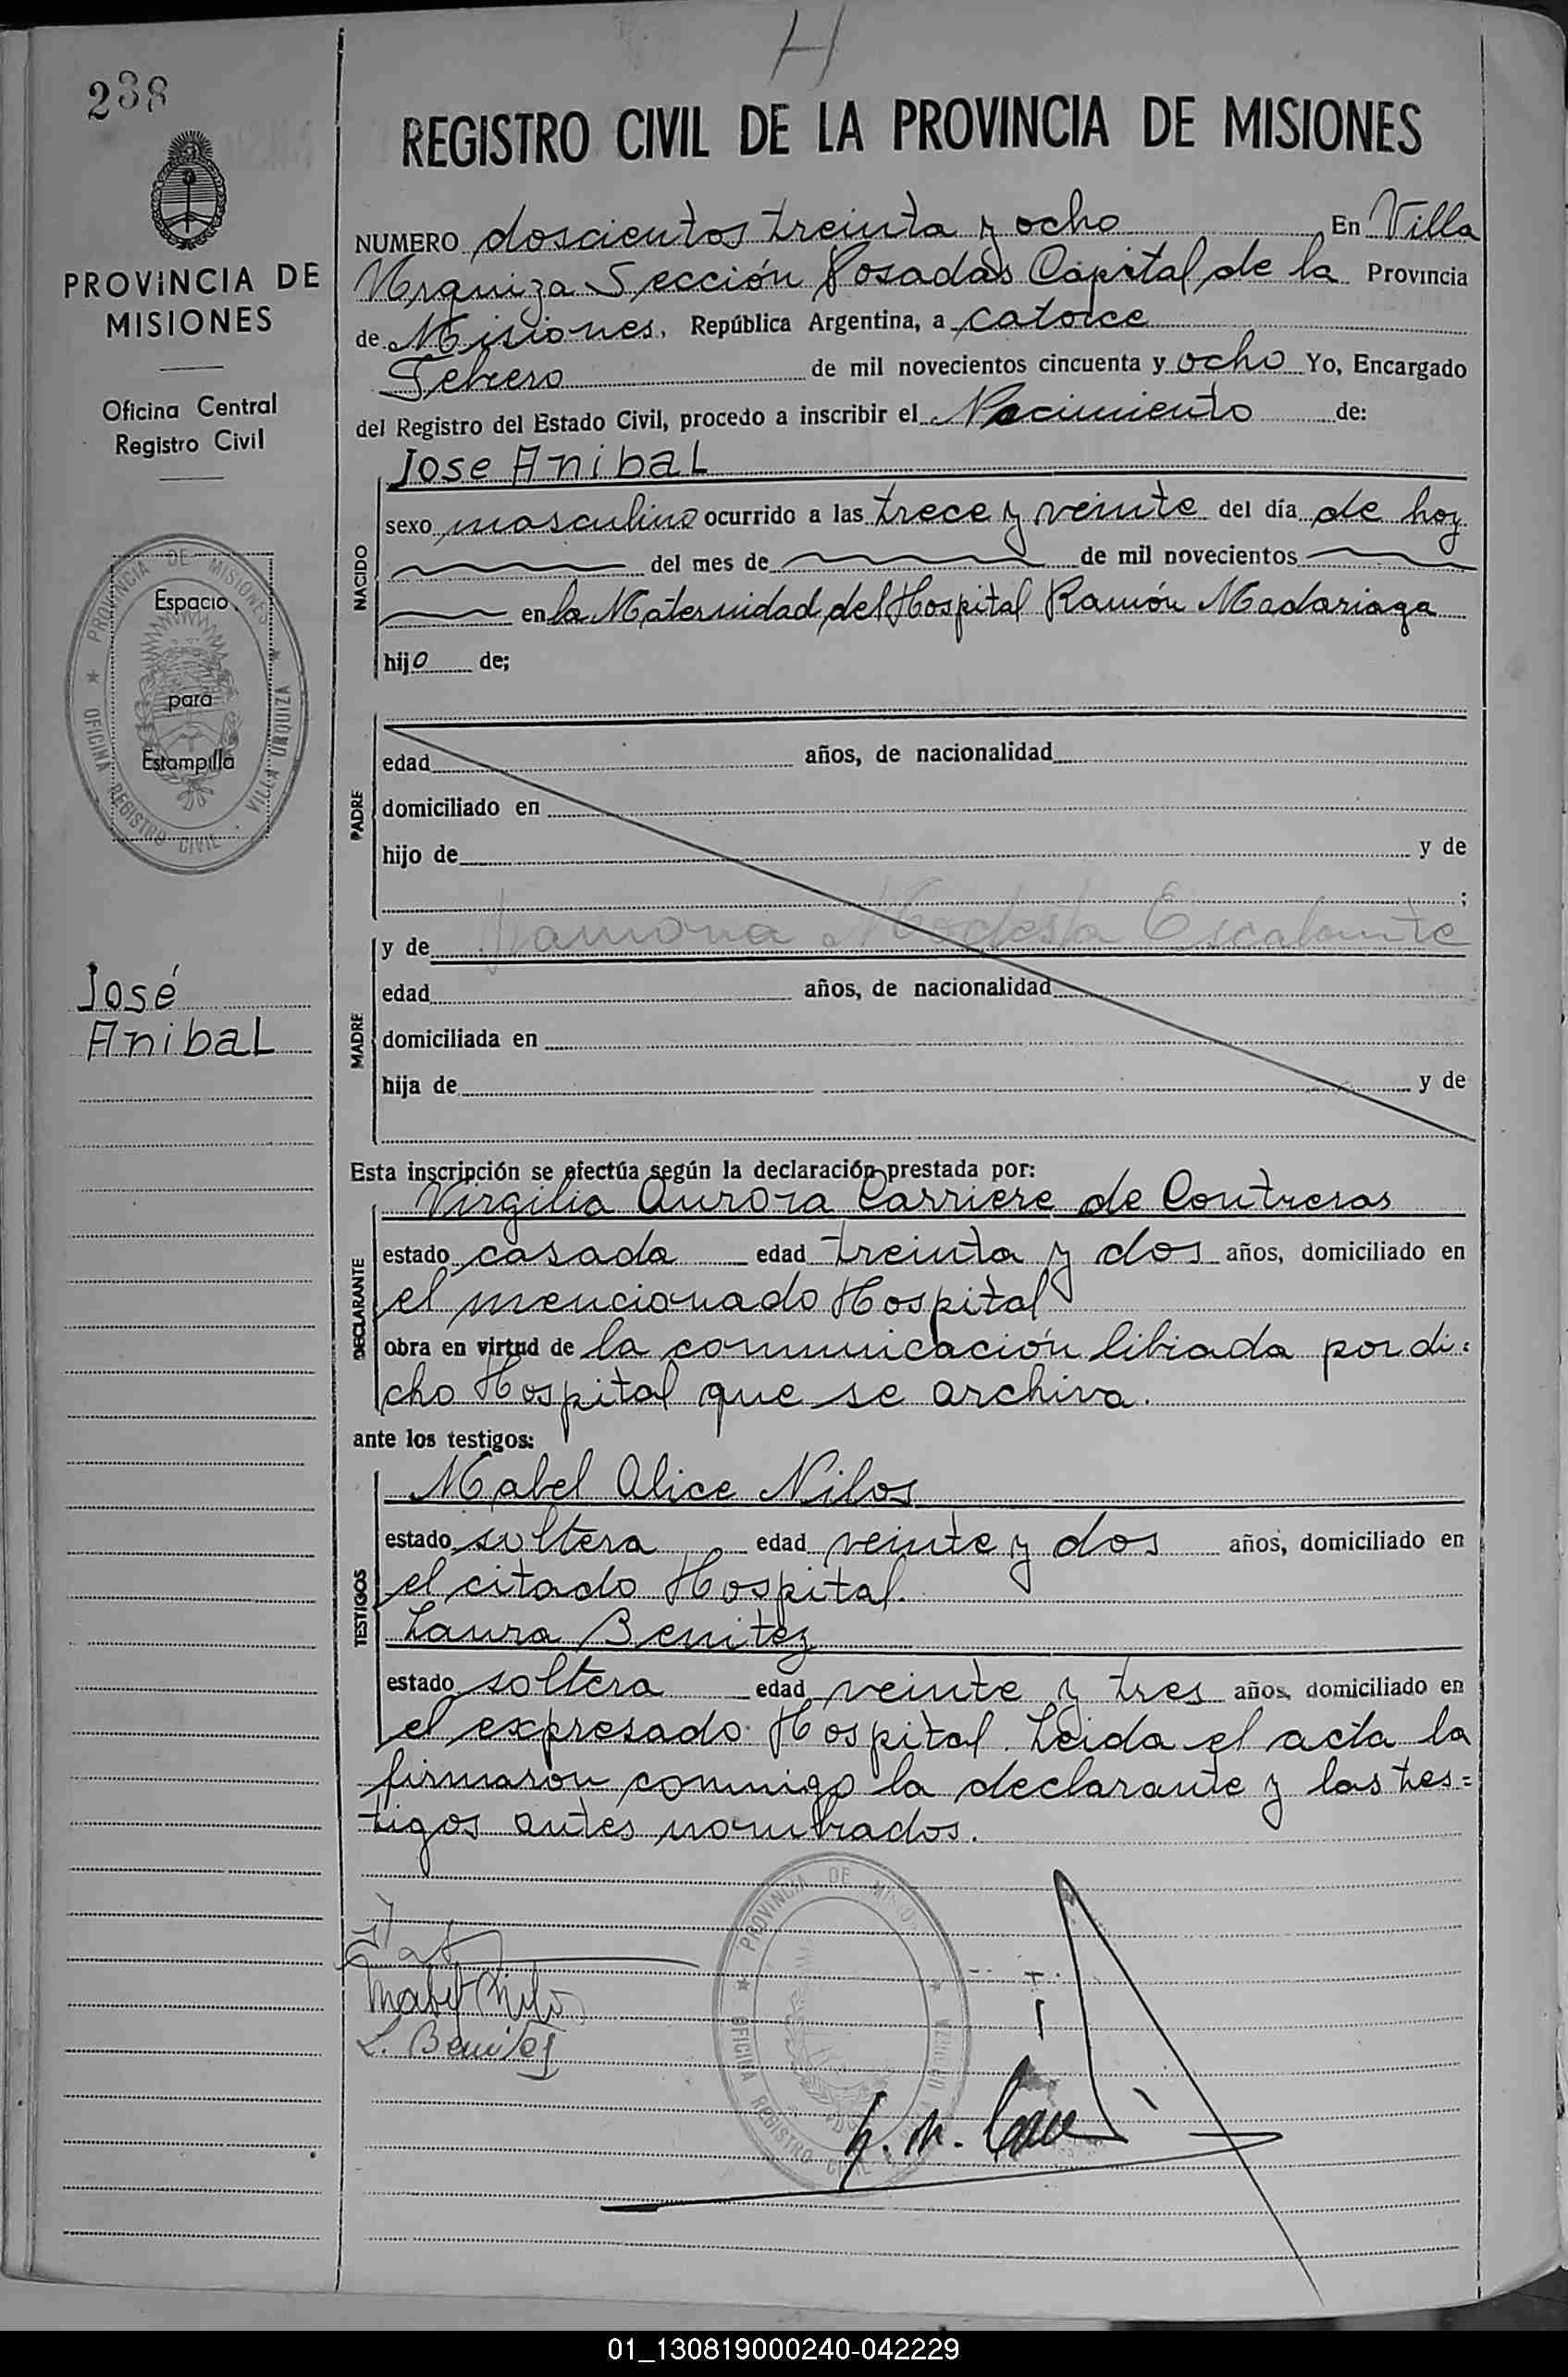 H
238
REGISTRO CIVIL DE LA PROVINCIA DE MISIONES
PROVINCIA DE
MISIONES
Oficina Central
Registro Civil
PROVINCIA DE MISIONES
OFICINA REGISTRO CIVIL - VILLA URQUIZA
Espacio
para
Estampilla
José
Anibal
NUMERO doscientos treinta y ocho En Villa
Urquiza Sección Posadas Capital de la Provincia
de Misiones, República Argentina, a catorce
Febrero de mil novecientos cincuenta y ocho Yo, Encargado
del Registro del Estado Civil, procedo a inscribir el Nacimiento de:
Jose Anibal
NACIDO
sexo masculino ocurrido a las trece y veinte del día de hoy
del mes de de mil novecientos
en la Maternidad del Hospital Ramón Madariaga
hijo de;
PADRE
edad años, de nacionalidad
domiciliado en
hijo de y de
;
MADRE
y de Ramona Modesta Escalante
edad años, de nacionalidad
domiciliada en
hija de y de
Esta inscripción se efectúa según la declaración prestada por:
DECLARANTE
Virgilia Aurora Carriere de Contreras
estado casada edad treinta y dos años, domiciliado en
el mencionado Hospital
obra en virtud de la comunicación librada por di=
cho Hospital que se archiva.
ante los testigos:
TESTIGOS
Mabel Alice Nilos
estado soltera edad veinte y dos años, domiciliado en
el citado Hospital.
Laura Benitez
estado soltera edad veinte y tres años, domiciliado en
el expresado Hospital. Leida el acta la
firmaron conmigo la declarante y las tes=
tigos antes nombrados.
PROVINCIA DE MISIONES
OFICINA REGISTRO CIVIL
L. Benitez
01_130819000240-042229